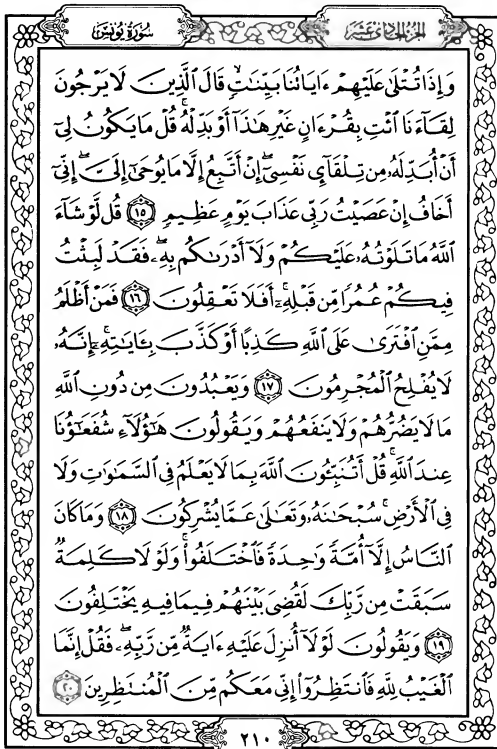 سُورَةُ يُونُسَ
الجُزءُ الحَادِي عَشَرَ
وَإِذَا تُتْلَىٰ عَلَيْهِمْ ءَايَاتُنَا بَيِّنَٰتٍ قَالَ ٱلَّذِينَ لَا يَرْجُونَ
لِقَآءَنَا ٱئْتِ بِقُرْءَانٍ غَيْرِ هَٰذَآ أَوْ بَدِّلْهُ قُلْ مَا يَكُونُ لِىٓ
أَنْ أُبَدِّلَهُۥ مِن تِلْقَآئِ نَفْسِىٓ إِنْ أَتَّبِعُ إِلَّا مَا يُوحَىٰٓ إِلَىَّ إِنِّىٓ
أَخَافُ إِنْ عَصَيْتُ رَبِّى عَذَابَ يَوْمٍ عَظِيمٍ ١٥ قُل لَّوْ شَآءَ
ٱللَّهُ مَا تَلَوْتُهُۥ عَلَيْكُمْ وَلَآ أَدْرَىٰكُم بِهِۦ فَقَدْ لَبِثْتُ
فِيكُمْ عُمُرًا مِّن قَبْلِهِۦٓ أَفَلَا تَعْقِلُونَ ١٦ فَمَنْ أَظْلَمُ
مِمَّنِ ٱفْتَرَىٰ عَلَى ٱللَّهِ كَذِبًا أَوْ كَذَّبَ بِـَٔايَٰتِهِۦٓ إِنَّهُۥ
لَا يُفْلِحُ ٱلْمُجْرِمُونَ ١٧ وَيَعْبُدُونَ مِن دُونِ ٱللَّهِ
مَا لَا يَضُرُّهُمْ وَلَا يَنفَعُهُمْ وَيَقُولُونَ هَٰٓؤُلَآءِ شُفَعَٰٓؤُنَا
عِندَ ٱللَّهِ قُلْ أَتُنَبِّـُٔونَ ٱللَّهَ بِمَا لَا يَعْلَمُ فِى ٱلسَّمَٰوَٰتِ وَلَا
فِى ٱلْأَرْضِ سُبْحَٰنَهُۥ وَتَعَٰلَىٰ عَمَّا يُشْرِكُونَ ١٨ وَمَا كَانَ
ٱلنَّاسُ إِلَّآ أُمَّةً وَٰحِدَةً فَٱخْتَلَفُوا۟ وَلَوْلَا كَلِمَةٌ
سَبَقَتْ مِن رَّبِّكَ لَقُضِىَ بَيْنَهُمْ فِيمَا فِيهِ يَخْتَلِفُونَ
١٩ وَيَقُولُونَ لَوْلَآ أُنزِلَ عَلَيْهِ ءَايَةٌ مِّن رَّبِّهِۦ فَقُلْ إِنَّمَا
ٱلْغَيْبُ لِلَّهِ فَٱنتَظِرُوٓا۟ إِنِّى مَعَكُم مِّنَ ٱلْمُنتَظِرِينَ ٢٠
٢١٠